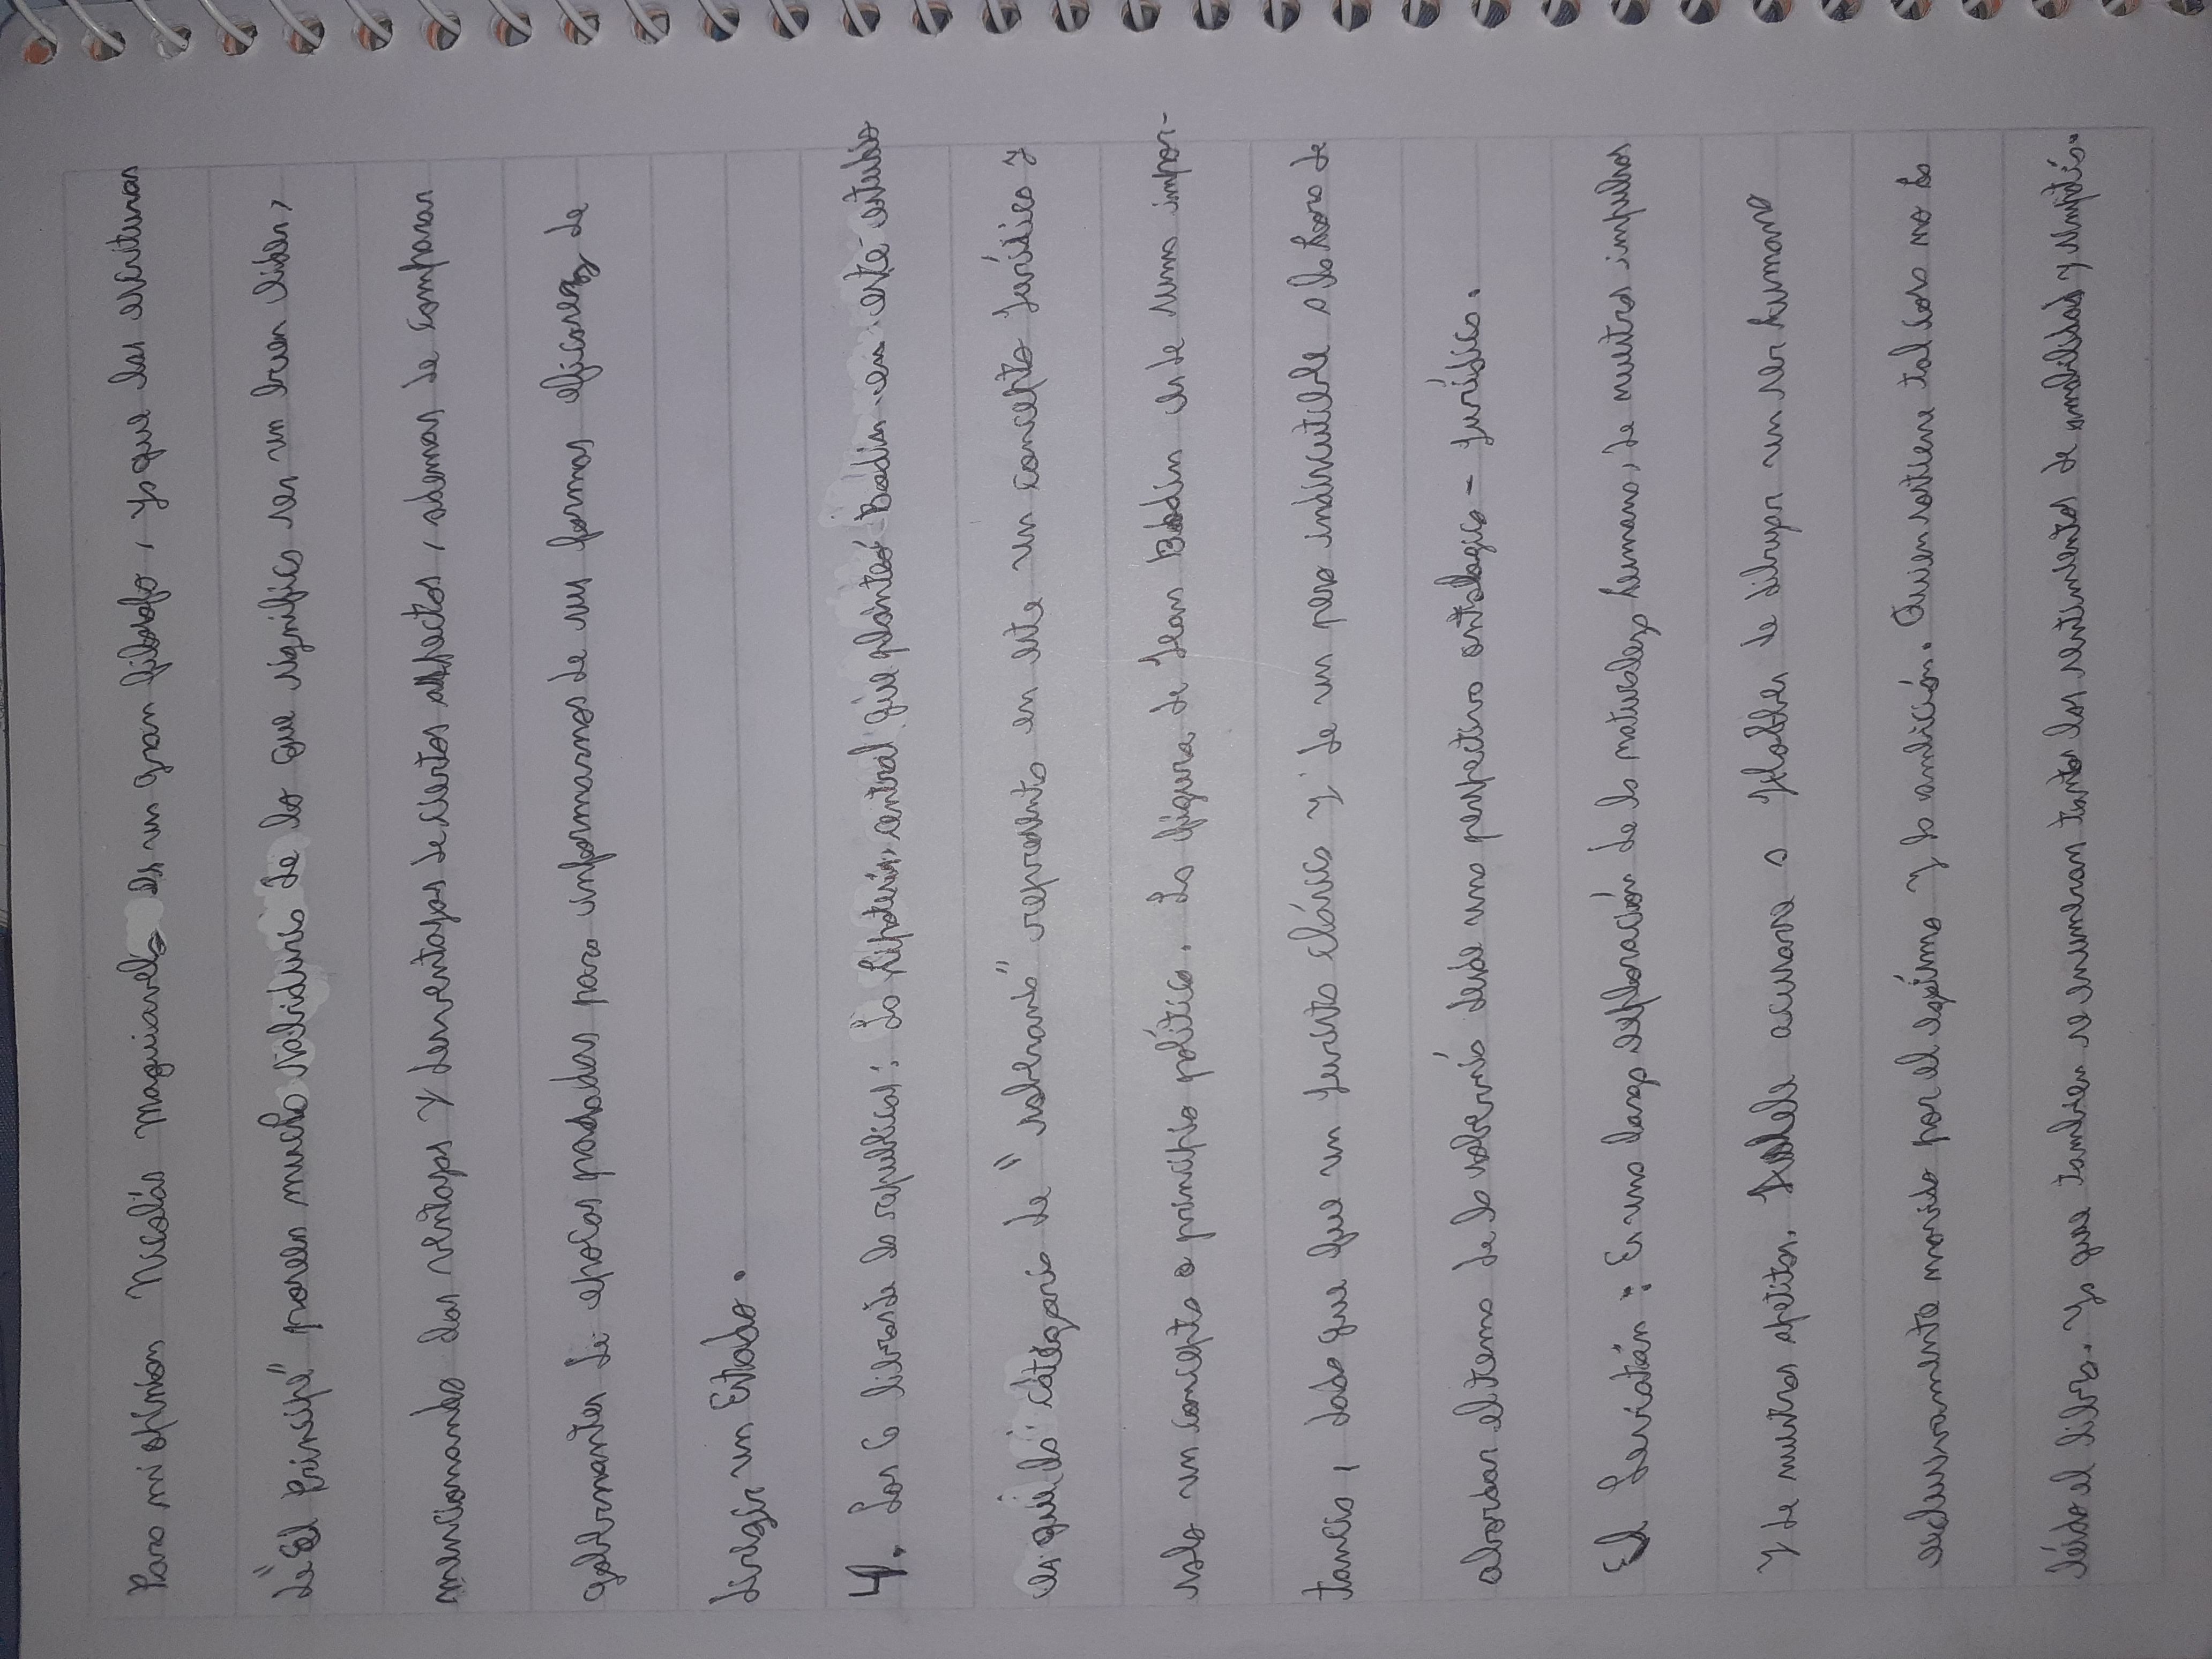 Para mi opinión Nicolás Maquiavelo es un gran filósofo, ya que las escrituras
de "El Príncipe" posees mucha sabiduría de lo que significa ser un buen líder,
mencionandos las ventajas y desventajas de ciertos aspectos, ademas de comparar
gobernantes de epocas pasadas para informarnos de sus formas eficaces de
dirigir un Estado.
4. Los 6 libros de la republica: La hipótesis central que planteó Bodin en este estudio
es que la categoria de "soberano" representa en este un concepto Jurídico y
solo un concepto o principio político. La figura de Jean Bodin es de suma impor-
tancia, dado que fue un Jurista clásico y de un peso indiscutible a la hora de
abordar el tema de la sobernía desde una perspectiva ontologica - Jurídica.
El Leviatán: Es una larga exploración de la naturaleza humana, de nuestros impulsos
y de nuestros apetitos. Suele acusarse a Hobbes de dibujar un ser humano
exclusivamente movido por el egoísmo y la ambición. Quien sostiene tal cosa no ha
leído el libro. Ya que tambien se enumeran tantos los sentimientos de amabilidad y simpatía.